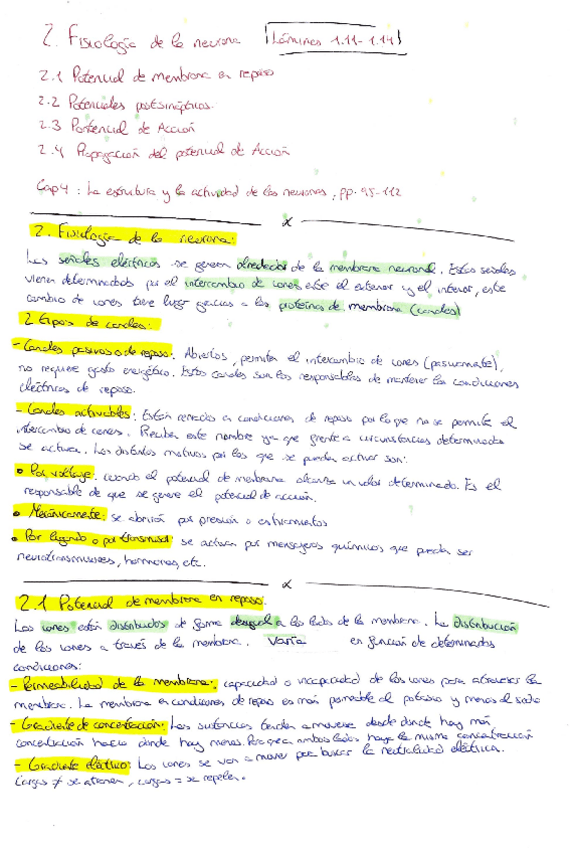 2. Fisiología de la neurona Láminas 1.11-1.14
2.1 Potencial de membrana en reposo
2.2 Potenciales postsinápticos.
2.3 Pontencial de Acción
2.4 Propagación del potencial de Acción
Cap 4: La estructura y la actividad de las neuronas, pp. 95-112
2. Fisiología de la neurona:
Las señales eléctricas se generan alrededor de la membrana neuronal. Estas señales
vienen determinadas por el intercambio de iones entre el exterior y el interior, este
cambio de iones tiene lugar gracias a las proteínas de membrana (canales)
2 tipos de canales:
- Canales pasivos o de reposo: Abiertos, permiten el intercambio de iones (pasivamente),
no requiere gasto energético. Estos canales son los responsables de mantener las condiciones
eléctricas de reposo.
- Canales activables: Están cerrados en condiciones de reposo por lo que no se permite el
intercambio de iones. Reciben este nombre ya que frente a circunstancias determinadas
se activan. Los distintos motivos por los que se pueden activar son:
• Por voltaje: cuando el potencial de membrana alcanza un valor determinado. Es el
responsable de que se genere el potencial de acción.
• Mecánicamente: se abrirán por presión o estiramientos
• Por ligando o por transmisor: se activan por mensajeros químicos que pueden ser
neurotransmisores, hormonas, etc.
2.1 Potencial de membrana en reposo:
Los iones están distribuidos de forma desigual a los lados de la membrana. La distribución
de los iones a través de la membrana. Varía en función de determinadas
condiciones:
- Permeabilidad de la membrana: capacidad o incapacidad de los iones para atravesar la
membrana. La membrana en condiciones de reposo es más permeable al potasio y menos al sodio
- Gradiente de concentración: Las sustancias tienden a moverse desde donde hay más
concentración hacia donde hay menos. Para que en ambos lados haya la misma concentración
- Gradiente eléctrico: Los iones se van a mover para buscar la neutralidad eléctrica.
Cargas ≠ se atraen, cargas = se repelen.